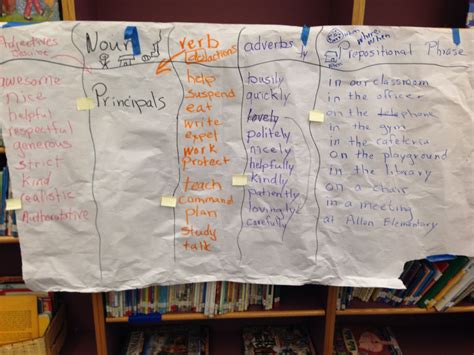 Adjectives
awesome
nice
helpful
respectful
generous
strict
kind
realistic
Authoritative
Noun
Principals
verb
actions
help
suspend
eat
write
expel
work
protect
teach
command
plan
study
talk
adverbs
busily
quickly
lovely
politely
nicely
helpfully
kindly
patiently
lovingly
carefully
Where When
Prepositional Phrase
in our classroom
in the office
on the phone
in the gym
in the cafeterea
on the playground
in the library
on a chair
in a meeting
at Allen Elementary